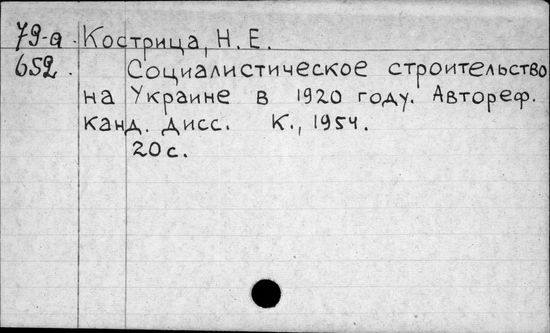 79-а. Кострица, Н. Е.
652. Социалистическое строительство
на Украине в 1920 году. Автореф.
канд. дисс. К., 1954.
20 с.